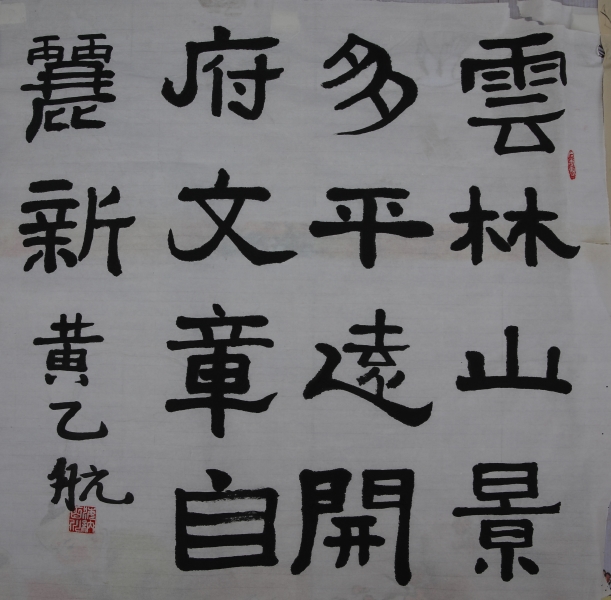 雲林山景
多平遠開
府文章自
麗新
黄乙航